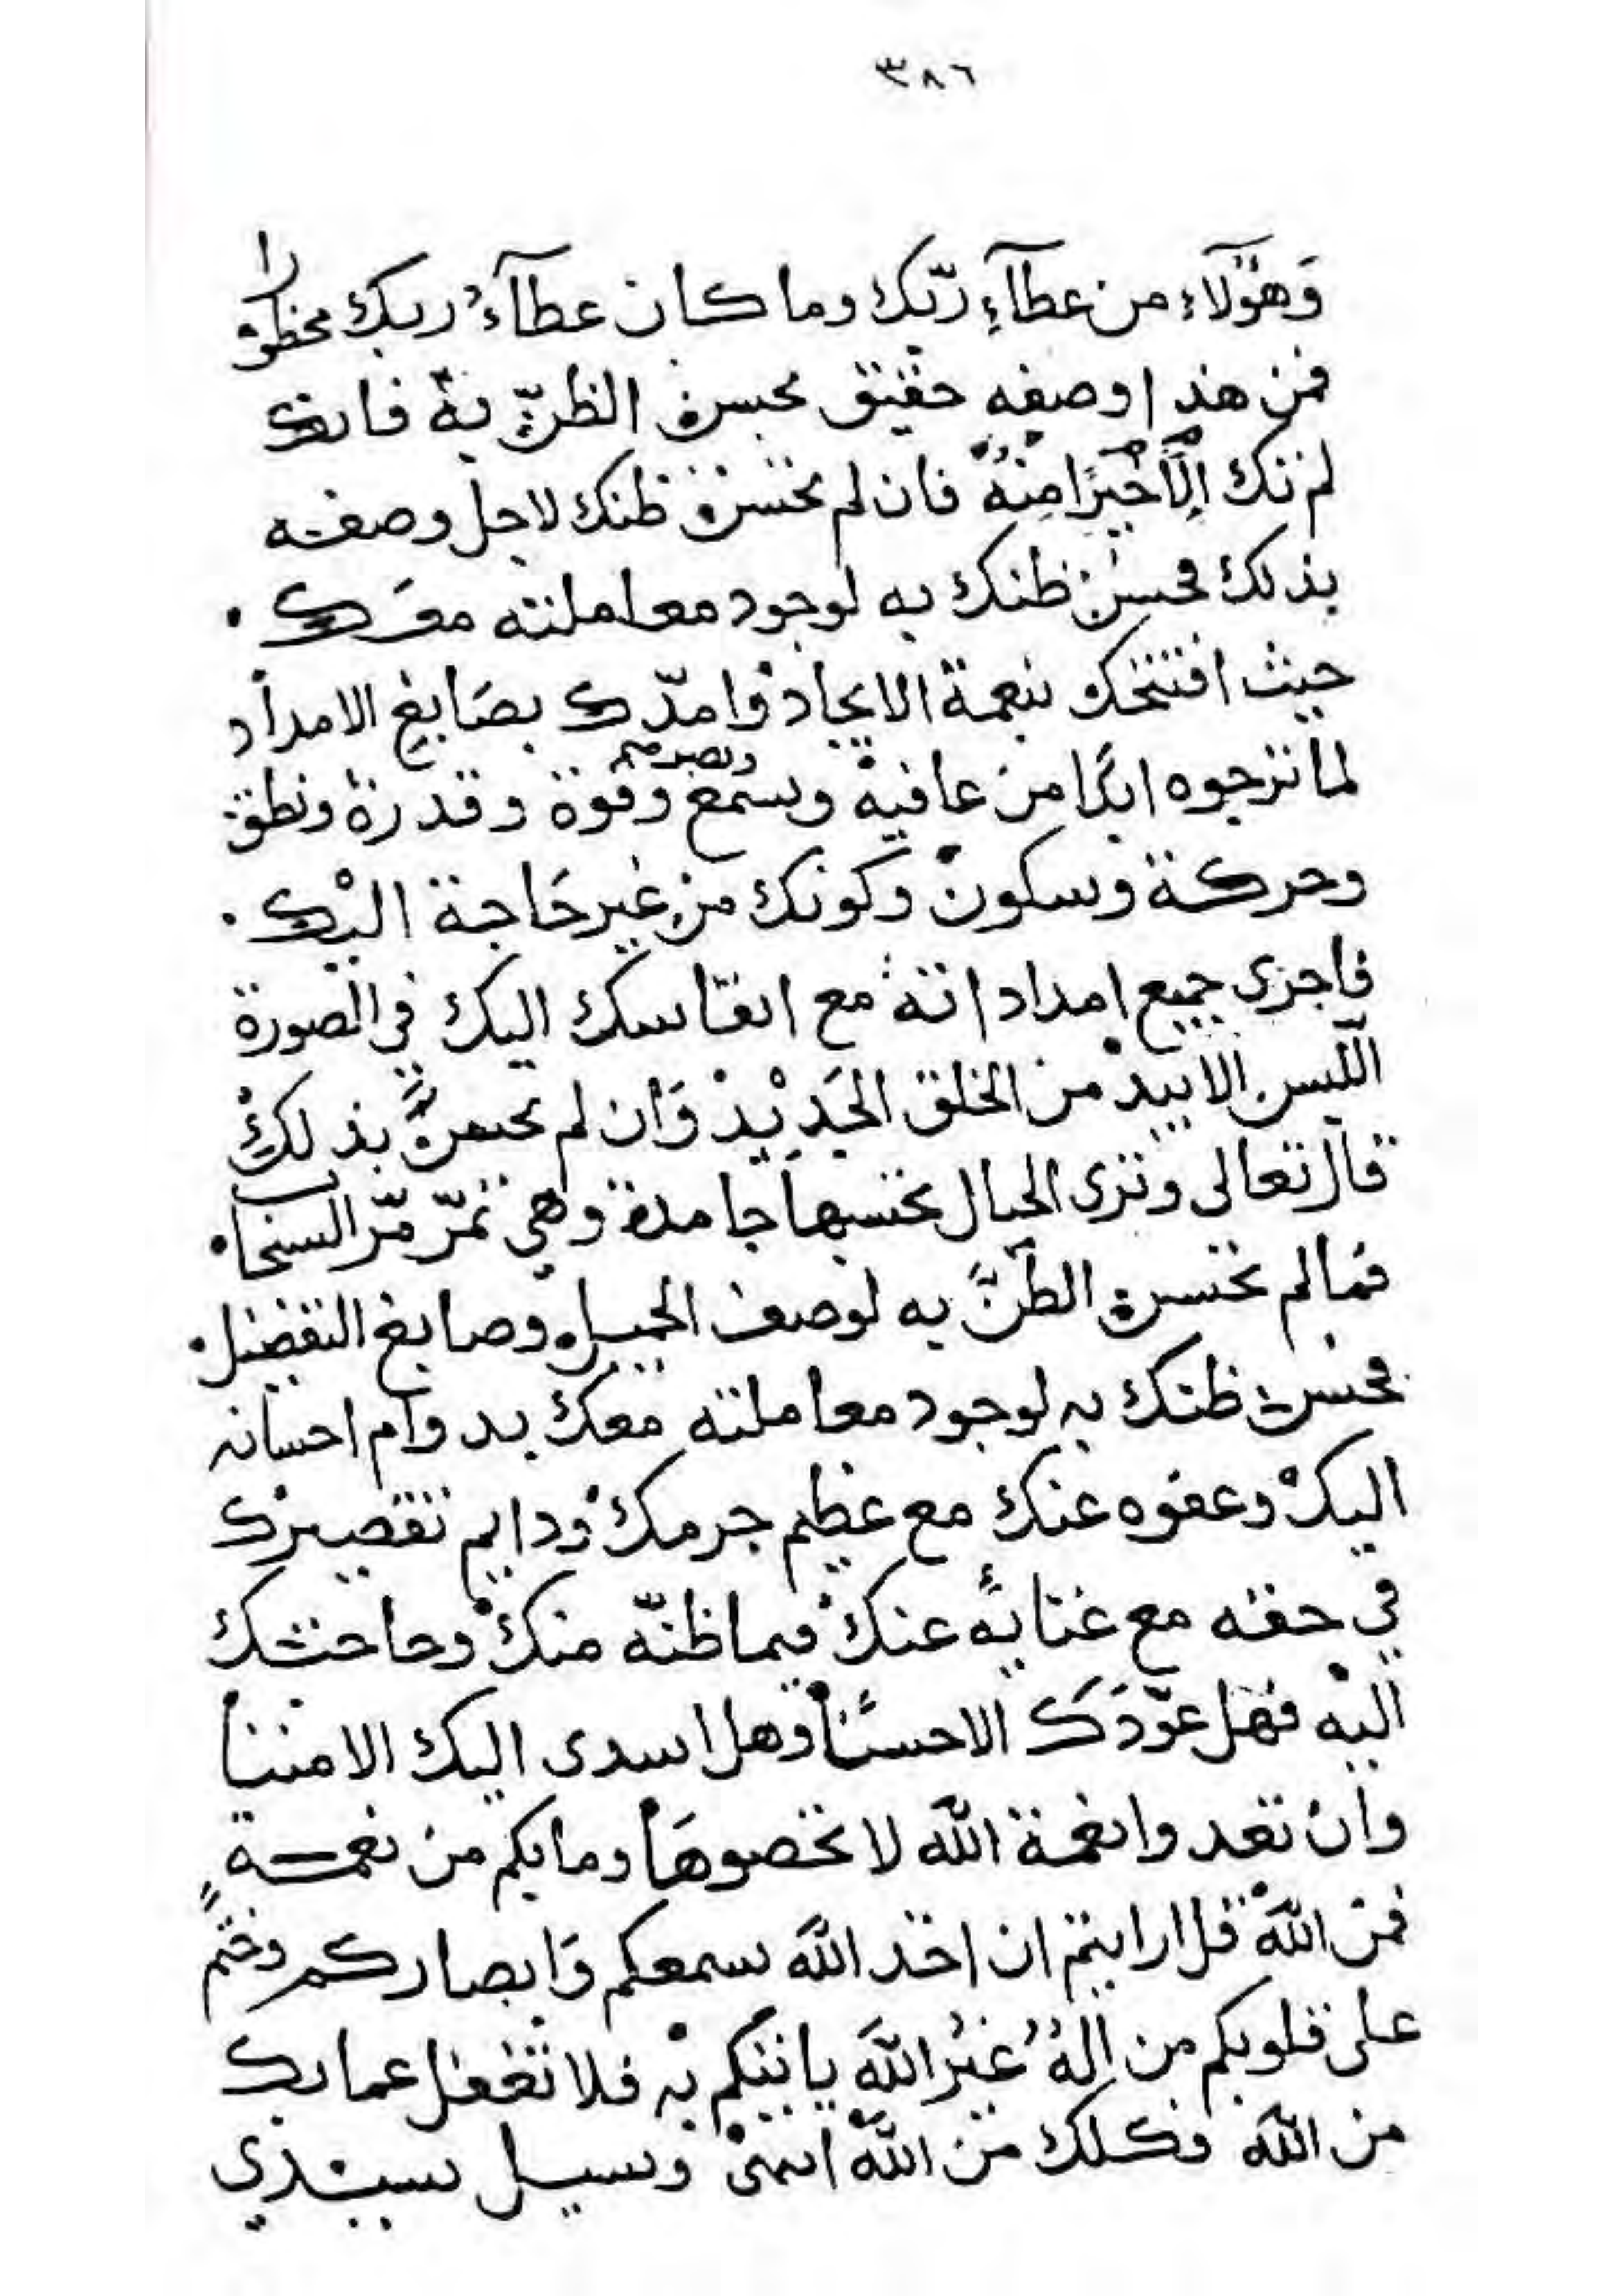 ٣٨٦
وَهٰؤلآءِ من عطآءِ ربّك وما كان عطآءُ ربك محظورا
فمن هذا وصفه حقيق بحسن الظنّ به فانك
لم تك إلّا خيرًا منه فان لم تحسن ظنك لاجل وصفه
بذلك فحسن ظنك به لوجود معاملته معَك .
حيث افتتحك بنعمة الايجاد وامدّك بصَابغ الامداد
لما ترجوه ابدًا من عافية وسمع وبصر وقوة وقدرة ونطق
وحركة وسكون وكونك من غير حَاجة اليْك .
فاجرى جميع امداداته مع انفاسك اليك في الصورة
اللبس الابيد من الخلق الجَديْد وَان لم تحس بذلك
قال تعالى وترى الجبال تحسبها جامدة وهي تمرّ مّر السحاب .
فما لم تحسن الظنَّ به لوصف الجميل وصابغ التفضل .
فحسن ظنك به لوجود معاملته معك بدوام احسانه
اليك وعفوه عنك مع عظيم جرمك ودايم تقصيرك
في حقه مع غنايه عنك فيما ظنّه منك وحاجتك
اليْه فهل عَوّدَك الا حسنًا وهل اسدى اليك الا مننا
وان تعدوا نعمة الله لا تحصوهَا وما بكم من نعمـة
فمن الله قل ارايتم ان اخذ الله سمعكم وَابصاركم وختم
على قلوبكم من إلهُ غيرُ الله ياتيكم به فلا تغفل عما بك
من الله فكلك من الله انتهى وسيل سيدي